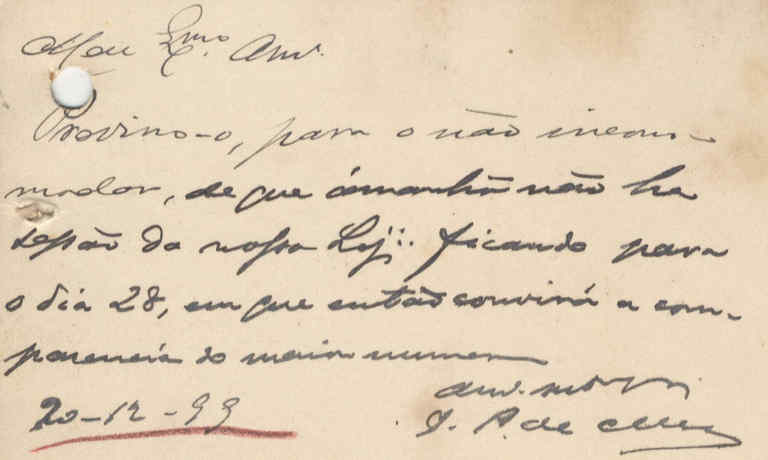 Meu Exmo Am.
Previno-o, para o não incom-
modar, de que ámanhã não ha
sessão da nossa Loj∴ ficando para
o dia 28, em que então convirá a com-
parencia do maior numero
Am.
20-12-99 J. A. de